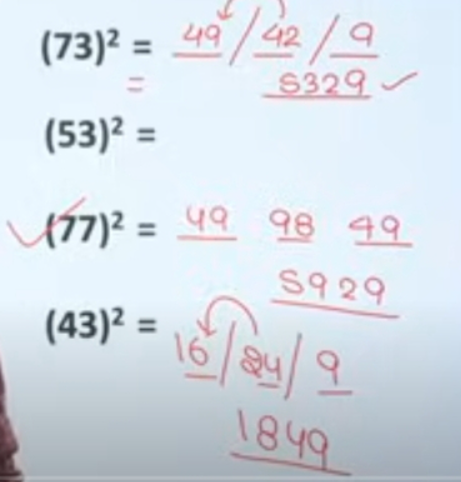 (73)² = 49 / 42 / 9
= 5329 ✓
(53)² =
✓ (77)² = 49 98 49
5929
(43)² = 16 / 24 / 9
1849